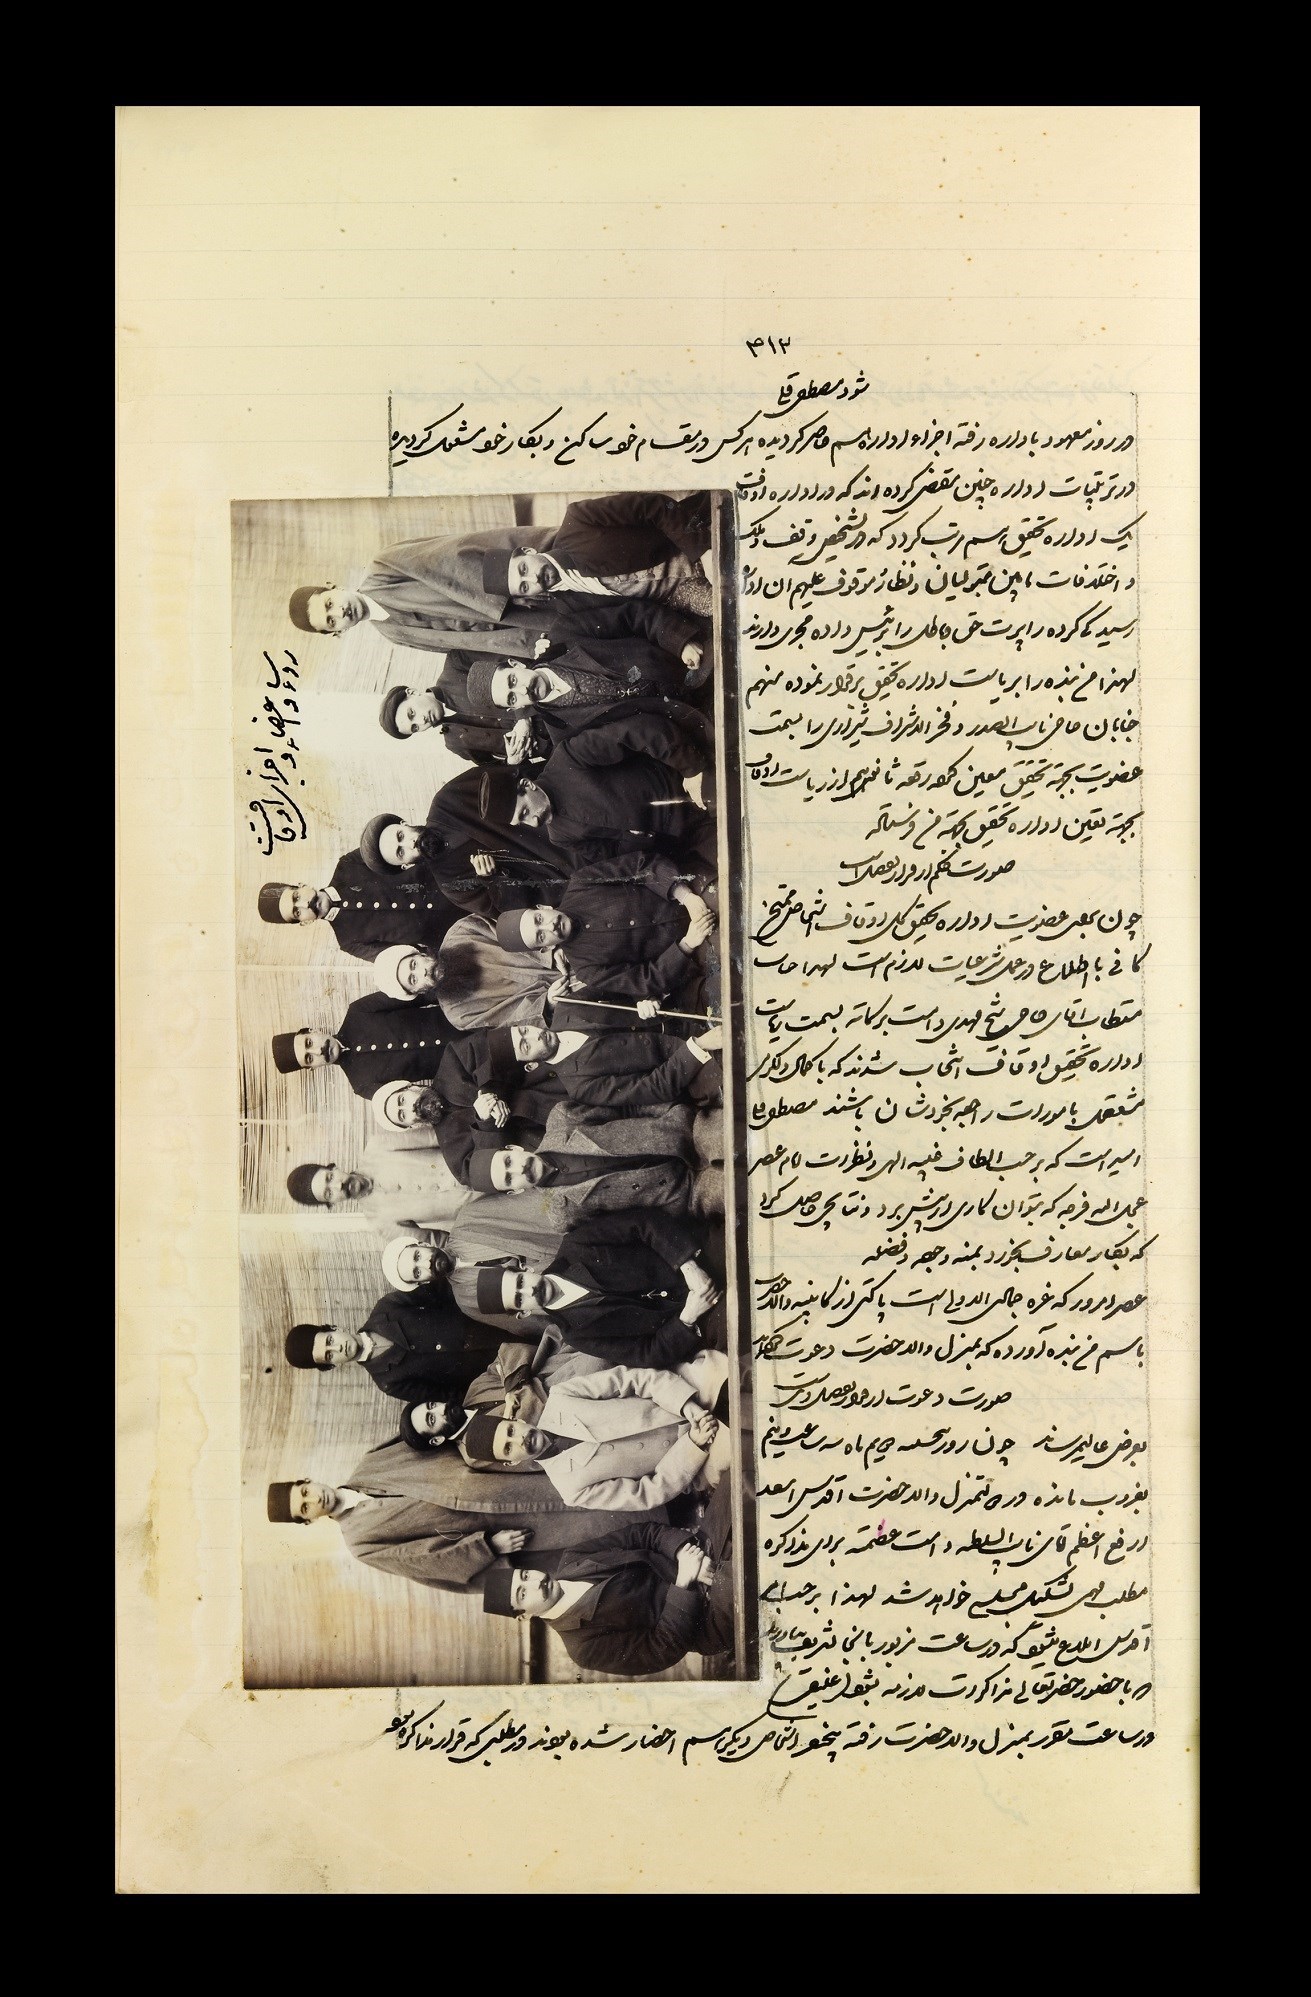 ۳۱۲
شود مصطفی قلی
در روز معهود باداره رفته اجزاء اداره هم حاضر گردیده هر کس در مقام خود ساکن و بکار خود مشغول گردیده
در ترتیبات اداره چنین مقتضی کرده اند که در اداره اوقاف
یک اداره تحقیق هم مرتب گردد که در تشخیص وقف و ملک
و اختلافات مابین متولیان و نظار و موقوف علیهم آن اداره
رسیدگی کرده راپرت حق و باطل را برئیس داده مجری دارند
لهذا من بنده را بریاست اداره تحقیق برقرار نموده منهم
جنابان حاجی نایب الصدر و فخر الاشراف شیرازی را بسمت
عضویت بجهة تحقیق معین کرده رقعه ثانوی هم از ریاست اوقاف
بجهة تعیین اداره تحقیق بجهة من فرستاده
صورت حکم از قرار تفصیل است
چون بجهة عضویت اداره تحقیق کل اوقاف اشخاص
کافی با اطلاع در عمل شرعیات لازم است لهذا جناب
مستطاب آقای حاجی شیخ مهدی دامت برکاته بسمت ریاست
اداره تحقیق اوقاف انتخاب شدند که با کمال دلگرمی
مشغول بامورات راجعه بخودشان باشند مصطفی قلی
امید است که بر حسب الطاف غیبیه الهی و نظارت امام عصر
عجل الله فرجه که بتوان کاری از پیش برد و نتایجی حاصل کرد
که بکار معارف بخورد بمنه و جوده و فضله
عصر امروز که غره جمادی الاولی است پاکتی از کابینه والاحضرت
باسم من بنده آورده که بمنزل والاحضرت دعوت
صورت دعوت از قرار تفصیل است
بعرض عالی میرساند چون روز سه ساعت و نیم
بغروب مانده در منزل والاحضرت اقدس اسعد
ارفع اعظم آقای نایب السلطنه دامت عظمته برای مذاکره
مطلب مهمی تشکیل مجلسی خواهد شد لهذا بر حسب امر
اقدس ابلاغ میشود که در ساعت مزبور بآنجا تشریف بیاورند
که با حضور حضرتعالی مذاکرات لازمه بشود
در ساعت مقرر بمنزل والاحضرت رفته پنجنفر اشخاص دیگر هم احضار شده بودند در مطلبی که قرار مذاکره بود
رؤسا و اعضاء و اجزاء اوقافست